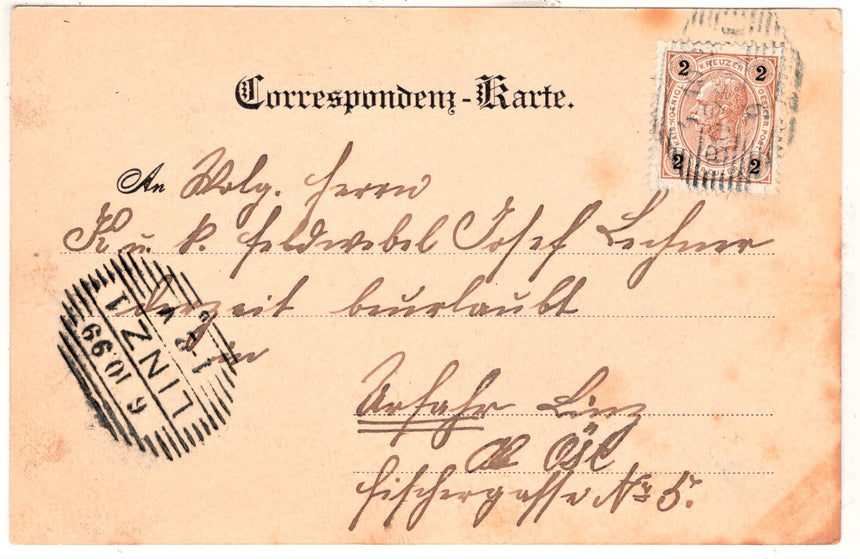 Correspondenz-Karte.
2 KREUZER 2
2 2
An Wolg. Herrn
K. u. k. Feldwebel Josef Lechner
derzeit beurlaubt
in
Urfahr Linz
Fischergasse No 5.
LINZ 1
6.10.99